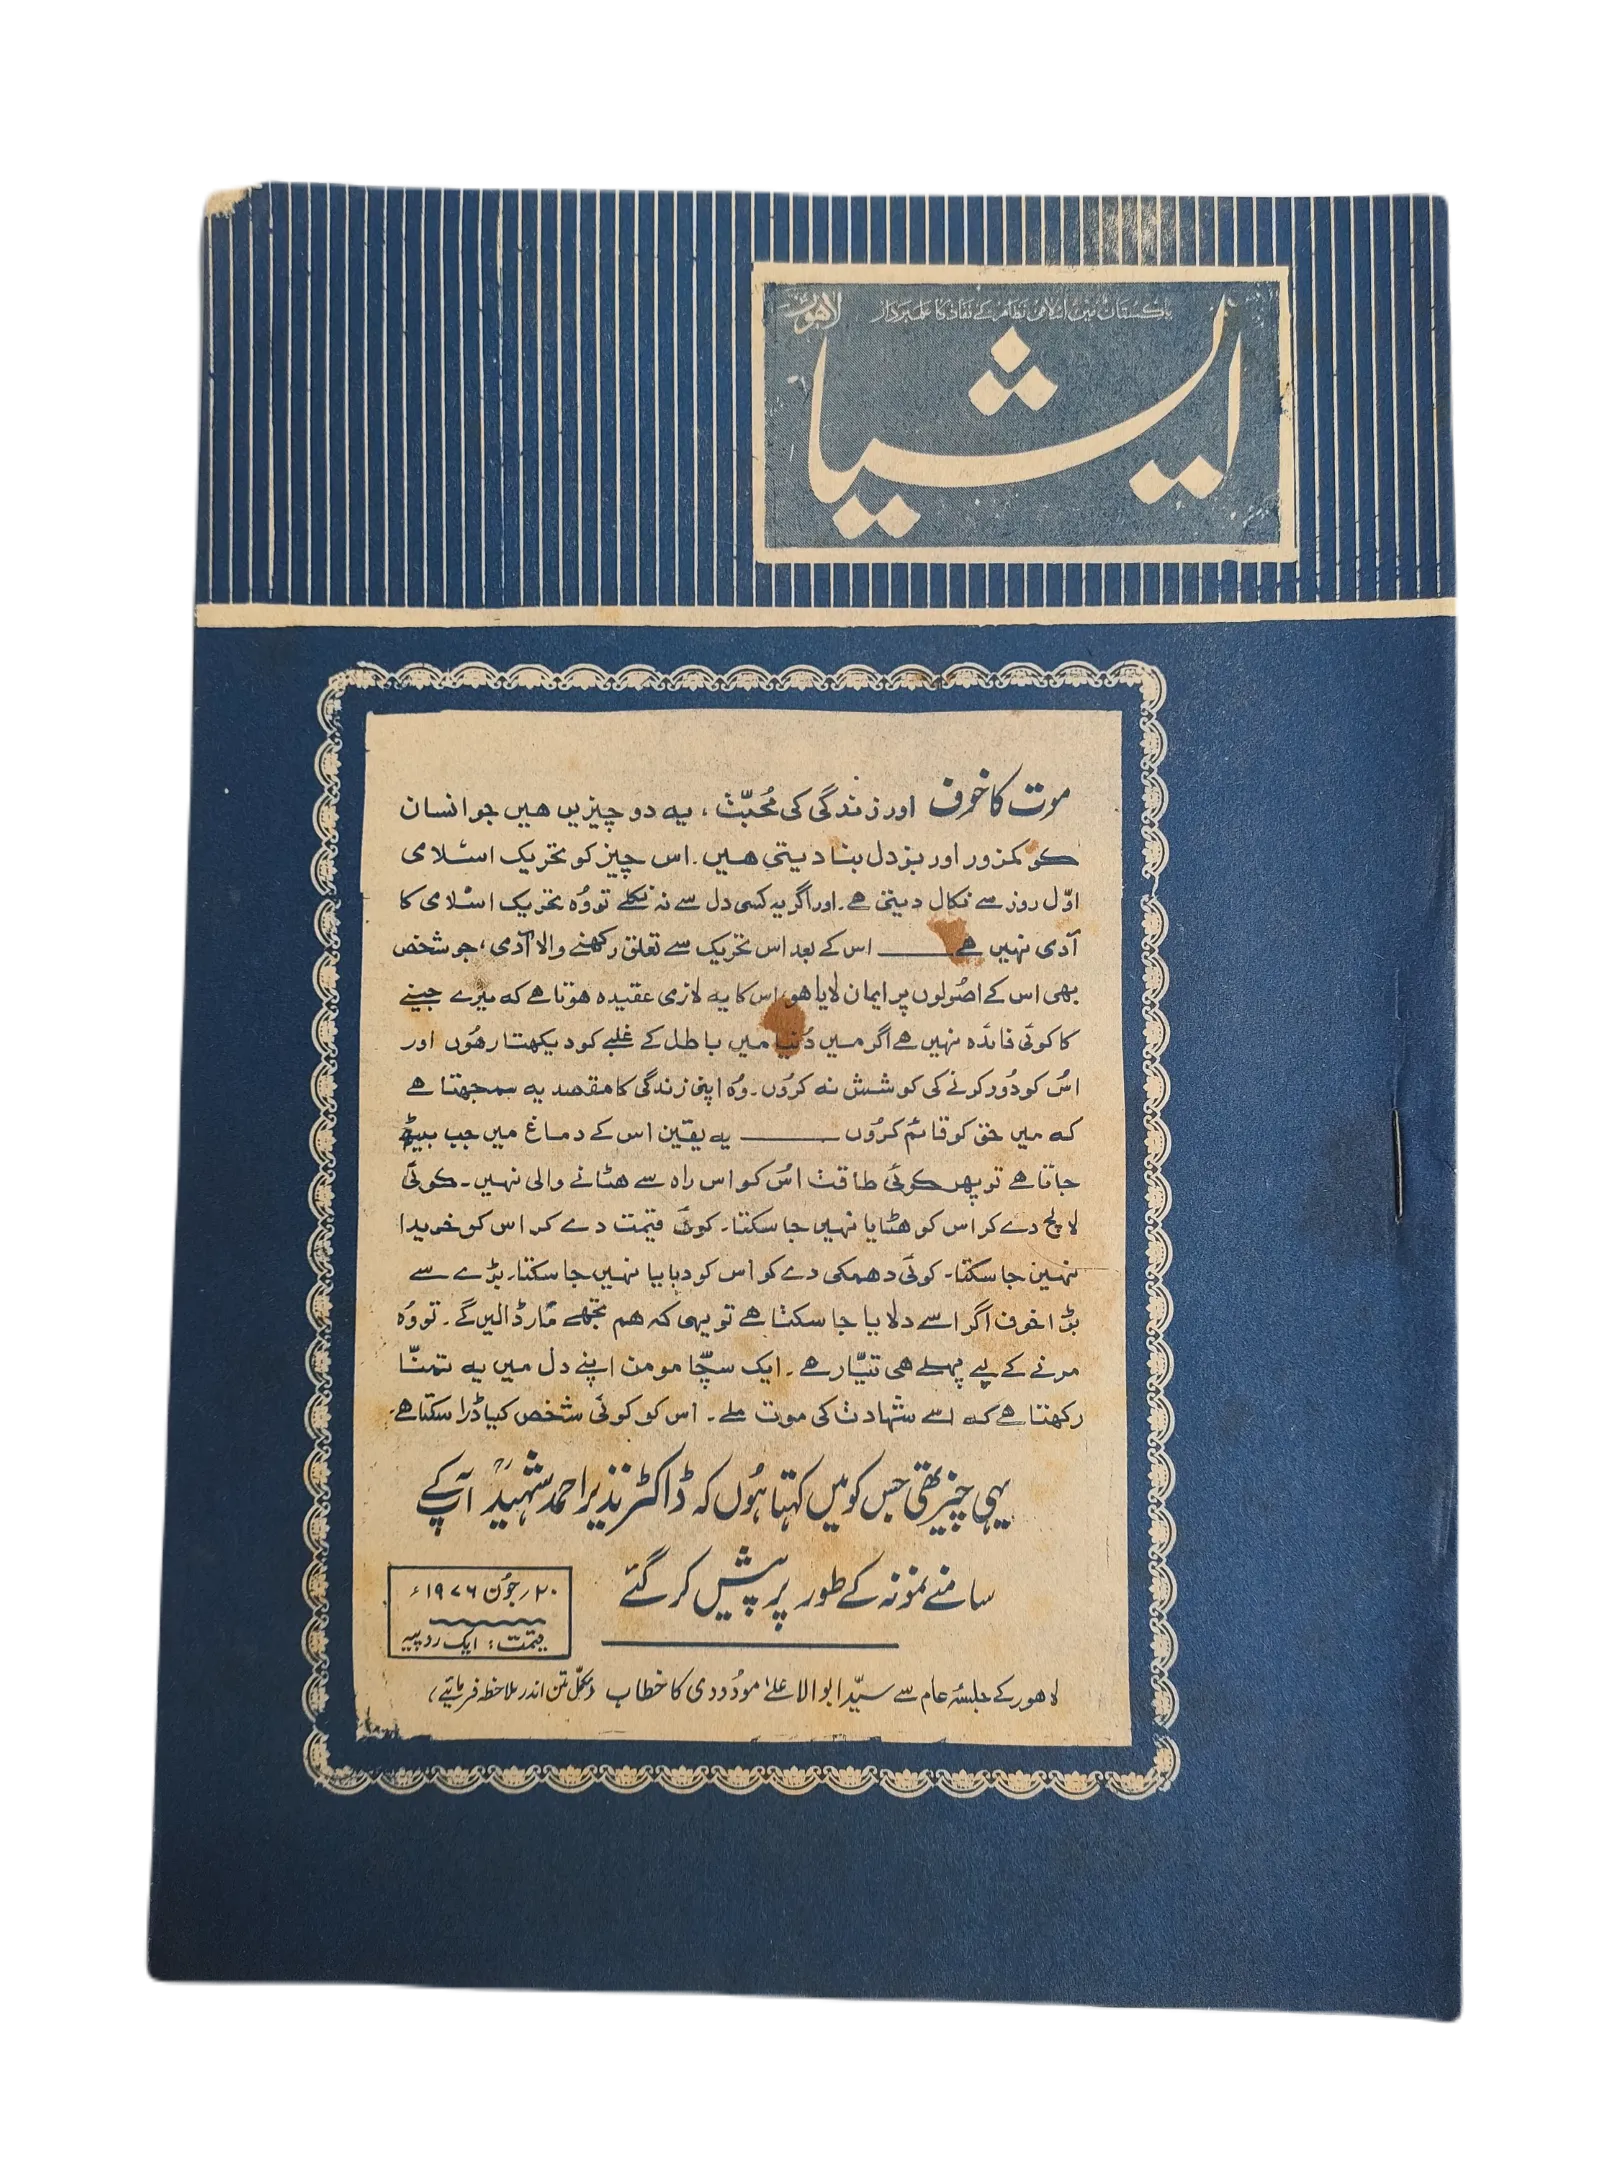 پاکستان میں اسلامی نظام کے نفاذ کا علمبردار
لاہور
ایشیا
موت کا خوف اور زندگی کی مُحبّت، یہ دو چیزیں ھیں جو انسان
کو کمزور اور بزدل بنا دیتی ھیں۔ اس چیز کو تحریک اسلامی
اوّل روز سے نکال دیتی ھے۔ اور اگر یہ کسی دل سے نہ نکلے تو وُہ تحریک اسلامی کا
آدمی نہیں ھے ــــــ اس کے بعد اس تحریک سے تعلق رکھنے والا آدمی، جو شخص
بھی اس کے اصُولوں پر ایمان لایا ھو، اس کا یہ لازمی عقیدہ ھوتا ھے کہ میرے جینے
کا کوئی فائدہ نہیں ھے اگر میں دُنیا میں باطل کے غلبے کو دیکھتا رھُوں اور
اسُ کو دُور کرنے کی کوشش نہ کروُں۔ وُہ اپنی زندگی کا مقصد یہ سمجھتا ھے
کہ میں حق کو قائم کروُں ــــــ یہ یقین اس کے دماغ میں جب بیٹھ
جاتا ھے تو پھر کوئی طاقت اسُ کو اس راہ سے ھٹانے والی نہیں۔ کوئی
لالچ دے کر اس کو ھٹایا نہیں جا سکتا۔ کوئی قیمت دے کر اس کو خریدا
نہیں جا سکتا۔ کوئی دھمکی دے کو اس کو دبایا نہیں جا سکتا۔ بڑے سے
بڑا خوف اگر اسے دلایا جا سکتا ھے تو یہی کہ ھم تجھے مار ڈالیں گے۔ تو وُہ
مرنے کے لیے پہلے ھی تیّار ھے۔ ایک سچّا مومن اپنے دل میں یہ تمنّا
رکھتا ھے کہ اسے شہادت کی موت ملے۔ اس کو کوئی شخص کیا ڈرا سکتا ھے۔
یہی چیز تھی جس کو میں کہتا ہُوں کہ ڈاکٹر نذیر احمد شہیدؒ آپ کے
سامنے نمونہ کے طور پر پیش کر گئے
۲۰ جوُن ۱۹۷۶ء
قیمت: ایک روپیہ
لاھور کے جلسۂ عام سے سیّد ابوالاعلےٰ موُدودی کا خطاب (مکمّل متن اندر ملاحظہ فرمائیے)